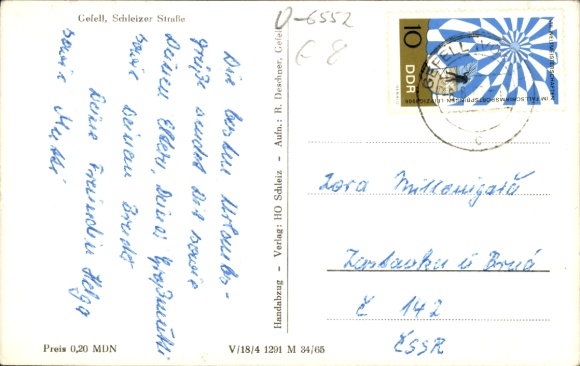 Gefell, Schleizer Straße
D-6552
Die besten Urlaubs-
grüße sendet Dir sowie
Deinen Eltern, Deine Großmutti
sowie Deinem Bruder
Deine Freundin Helga
sowie Mutti
Preis 0,20 MDN
V/18/4 1291 M 34/65
Handabzug – Verlag: HO Schleiz – Aufn.: R. Deschner, Gefell
10
DDR
GEFELL
c
Zastavka u Brna
č 142
ČSSR